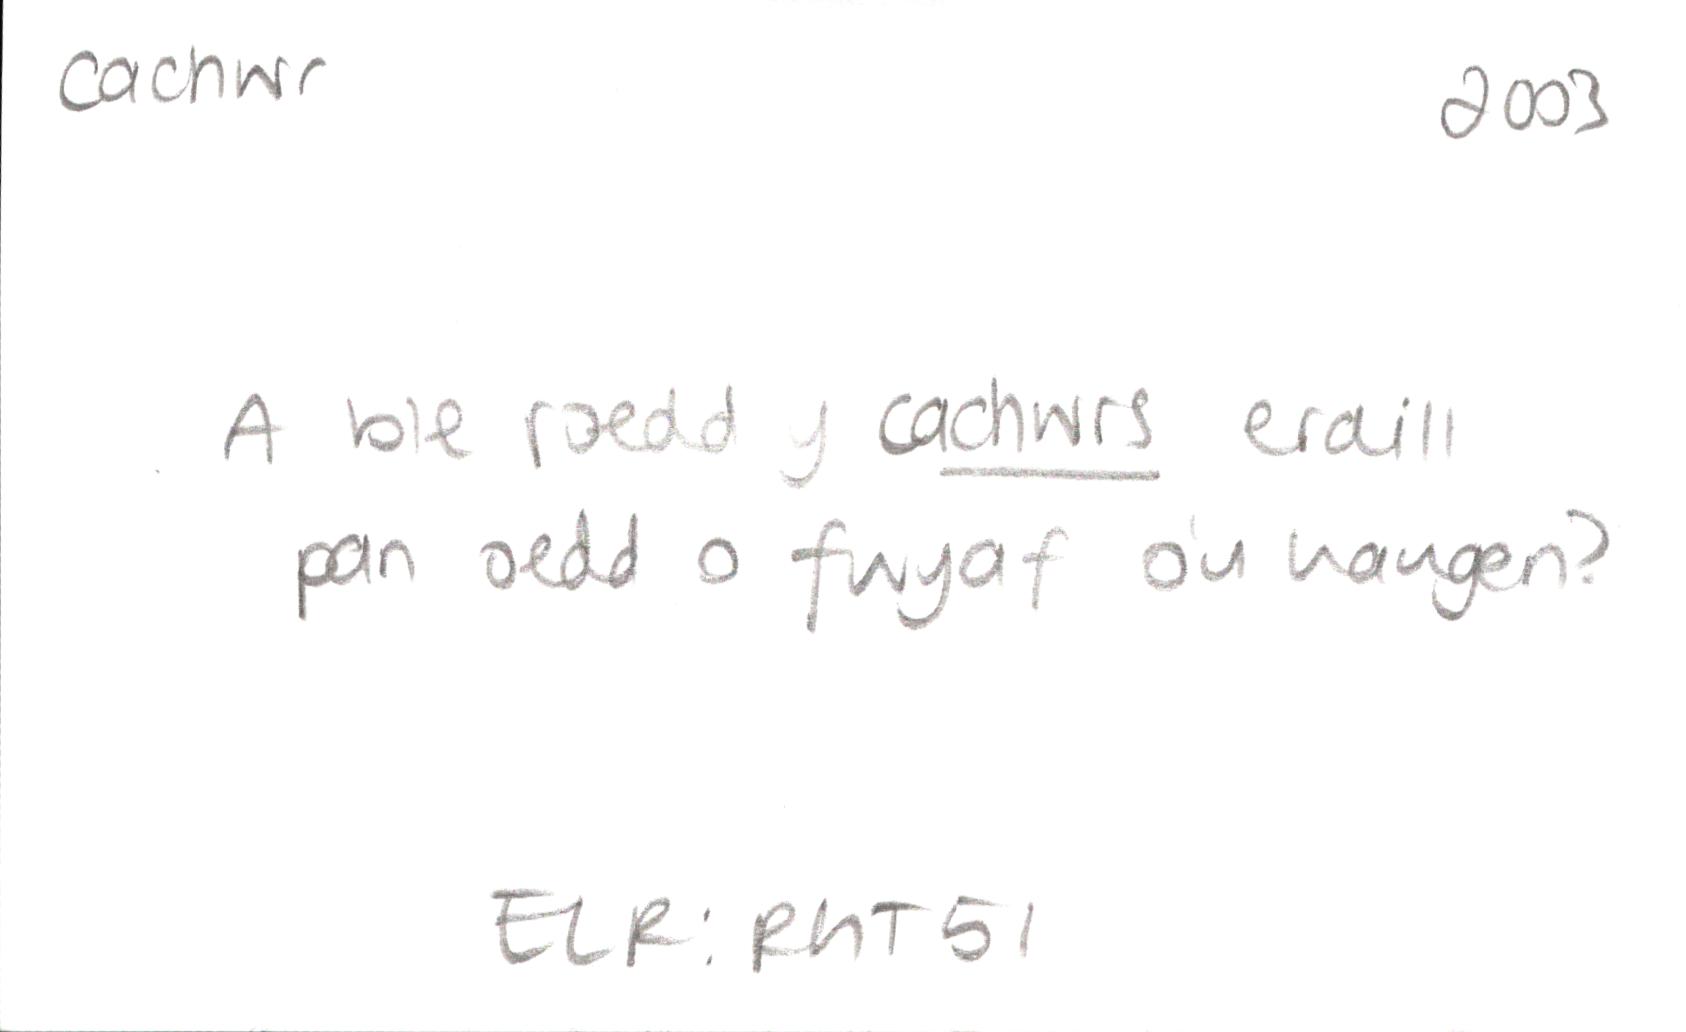 cachwr
2003
A ble roedd y cachwrs eraill
pan oedd o fwyaf o'u haugen?
ELR: RhT 51